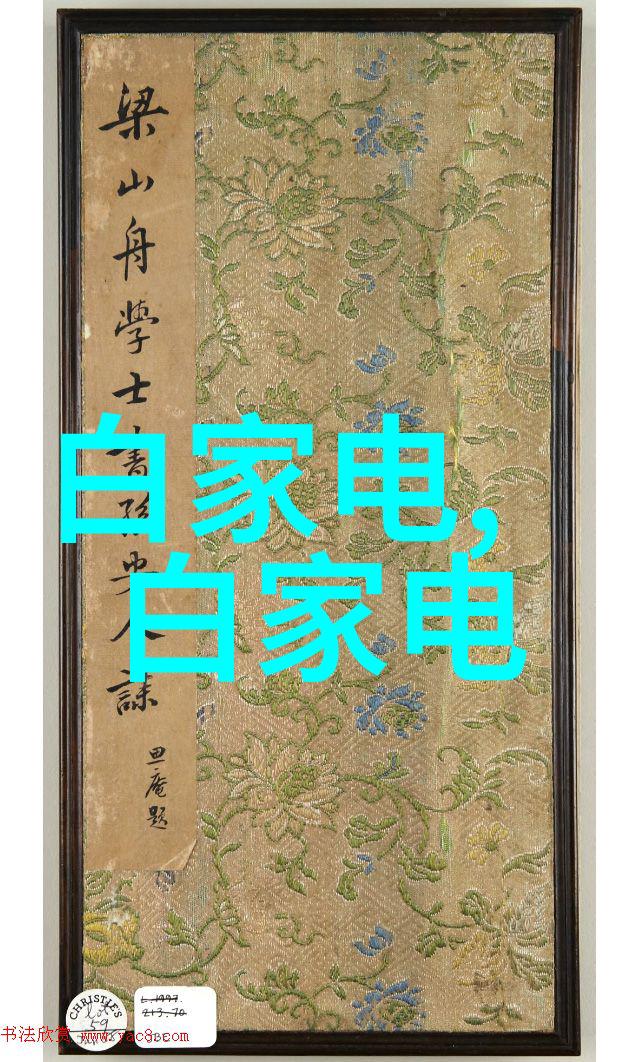 梁山舟學士書孫安人誄
庵題
白家电,
白家电
CHRISTIE'S
Lot
59
L.1997.
213.70
书法欣赏 www.yac8.com